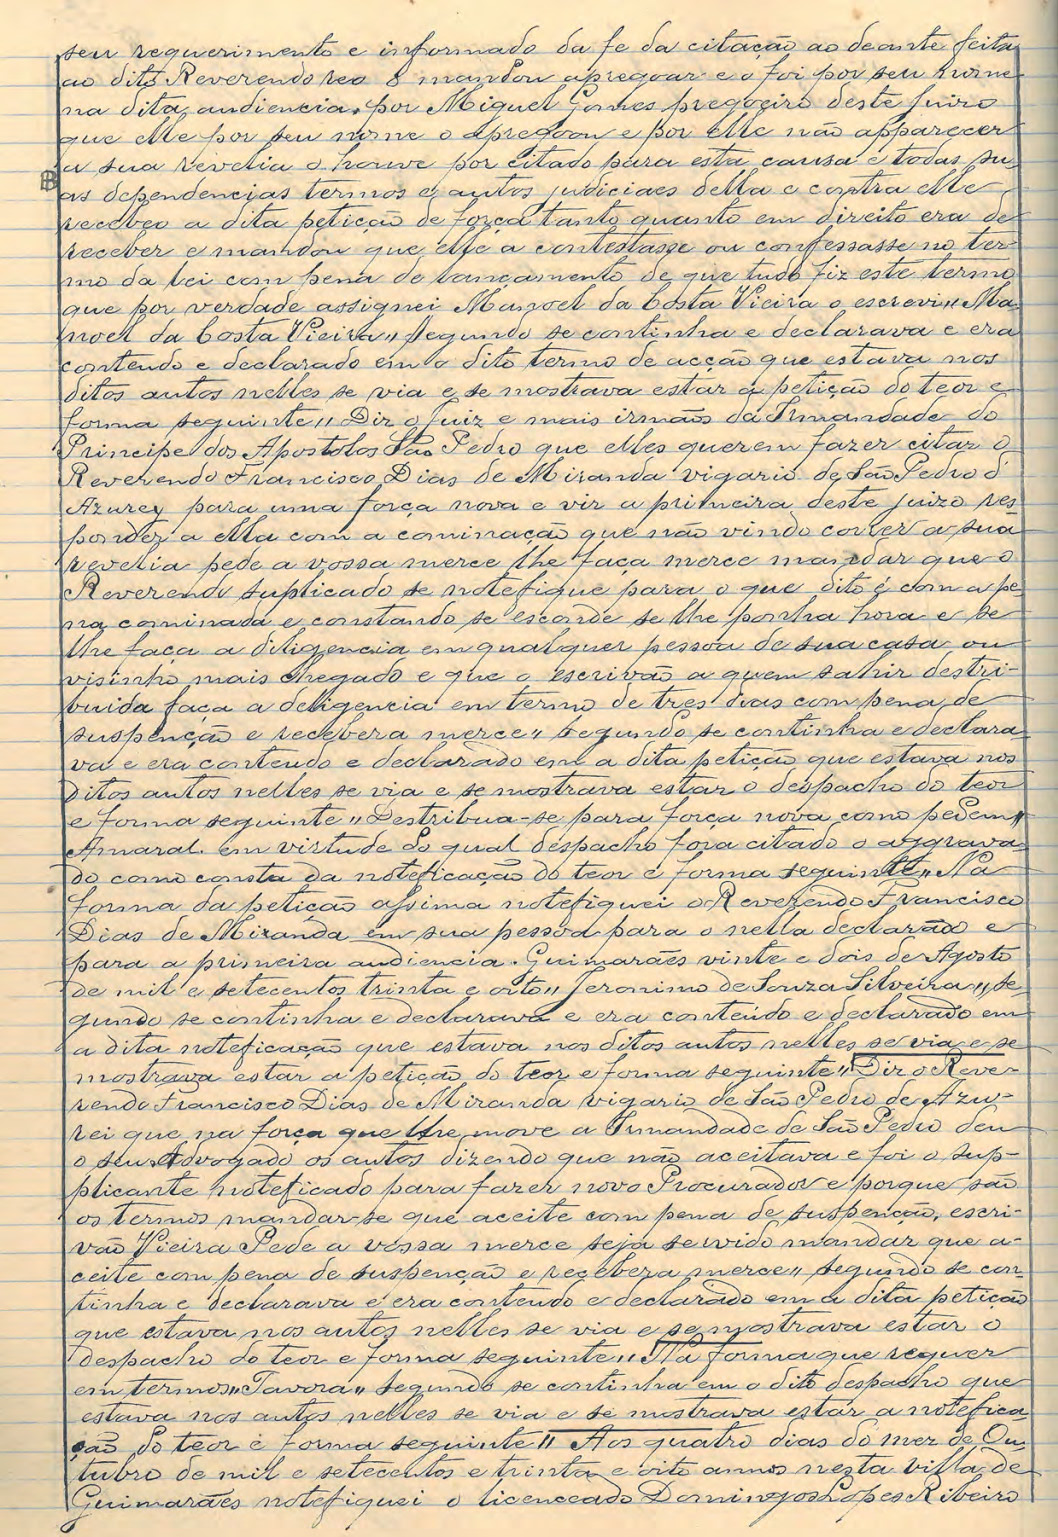 seu requerimento e informado da fe da citação ao deante feita
ao dito Reverendo reo o mandou apregoar e o foi por seu nome
na dita audiencia, por Miguel Gomes pregoeiro deste Juizo
que elle por seu nome o apregoou e por elle não apparecer
a sua revelia o houve por citado para esta causa e todas su-
as dependencias termos e autos judiciaes della e contra elle
recebeo a dita petição de força tanto quanto em direito era de
receber e mandou que elle a contestasse ou confessasse no ter-
mo da lei com pena de lançamento de que tudo fiz este termo
que por verdade assignei Manoel da Costa Vieira o escrevi,, Ma-
noel da Costa Vieira,, Segundo se continha e declarava e era
contendo e declarado em o dito termo de acção que estava nos
ditos autos nelles se via e se mostrava estar a petição do teor e
forma seguinte,, Diz o Juiz e mais irmãos da Irmandade do
Principe dos Apostolos São Pedro que elles querem fazer citar o
Reverendo Francisco Dias de Miranda vigario de São Pedro d'
Azurey para uma força nova e vir a primeira deste juizo res-
ponder a ella com a cominação que não vindo correr a sua
revelia pede a vossa merce lhe faça merce mandar que o
Reverendo suplicado se notefique para o que dito é com a pe-
na cominada e constando se esconde se lhe ponha hora e se
lhe faça a diligencia em qualquer pessoa de sua casa, ou
visinho mais chegado e que o escrivão a quem sahir destri-
buida faça a deligencia em termo de tres dias com pena de
suspenção e recebera merce,, Segundo se continha e declara-
va e era contendo e declarado em a dita petição que estava nos
ditos autos nelles se via e se mostrava estar o despacho do teor
e forma seguinte,, Destribua-se para força nova como pedem,,
Amaral. em virtude do qual despacho fora citado o aggrava-
do como consta da noteficação do teor e forma seguinte,, Na
forma da petição assima notefiquei o Reverendo Francisco
Dias de Miranda em sua pessoa para o nella declarado e
para a primeira audiencia. Guimarães vinte e dois de Agosto
de mil e setecentos trinta e oito,, Jeronimo de Souza Silveira,, se-
gundo se continha e declarava e era conteúdo e declarado em
a dita noteficação que estava nos ditos autos nelles se via e se
mostrava estar a petição do teor e forma seguinte,, Diz o Reve-
rendo Francisco Dias de Miranda vigario de São Pedro de Azu-
rei que na força que lhe move a Irmandade de São Pedro deu
o seu Advogado os autos dizendo que não aceitava e foi o sup-
plicante noteficado para fazer novo Procurador e porque são
os termos mandar-se que aceite com pena de suspenção, escri-
vão Vieira Pede a vossa merce seja servido mandar que a-
ceite com pena de suspenção e recebera merce,, segundo se con-
tinha e declarava e era contendo e declarado em a dita petição
que estava nos autos nelles se via e se mostrava estar o
despacho do teor e forma seguinte,, Na forma que requer
em termos,, Tavora,, segundo se continha em o dito despacho que
estava nos autos nelles se via e se mostrava estar a notefica-
ção do teor e forma seguinte,, Aos quatro dias do mez de Ou-
tubro de mil e setecentos e trinta e oito annos nesta villa de
Guimarães notefiquei o licenceado Domingos Lopes Ribeiro